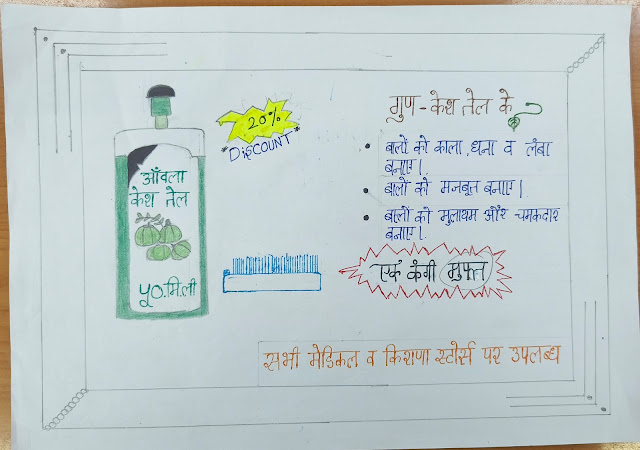 आँवला
केश तेल
५०.मि.ली
20%
"DiSCOUNT"
गुण - केश तेल के
• बालों को काला, घना व लंबा
बनाए।
• बालों को मजबूत बनाए।
• बालों को मुलायम और चमकदार
बनाए।
एक कंगी मुफ्त
सभी मेडिकल व किराणा स्टोर्स पर उपलब्ध